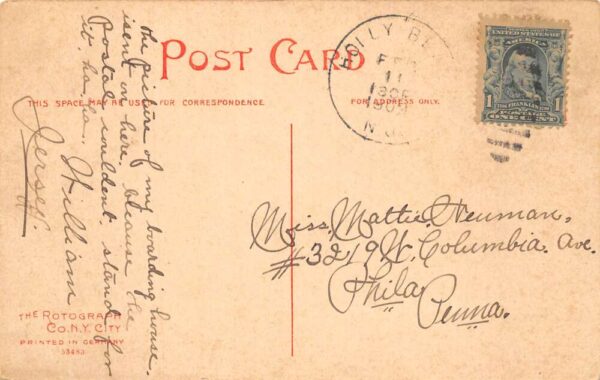 POST CARD
THIS SPACE MAY BE USED FOR CORRESPONDENCE.
FOR ADDRESS ONLY.
The picture of my boarding house.
isent on here. because the
Postal couldent stand for
it. ha, ha. William
Jersey.
HOLLY BE
FEB
11
N.J.
UNITED STATES OF
AMERICA
1 FRANKLIN 1
POSTAGE
ONE CENT
Miss. Mattie. Neuman.
#3219 W. Columbia Ave.
Phila
Penna.
THE ROTOGRAPH
CO. N.Y. CITY
PRINTED IN GERMANY
53483